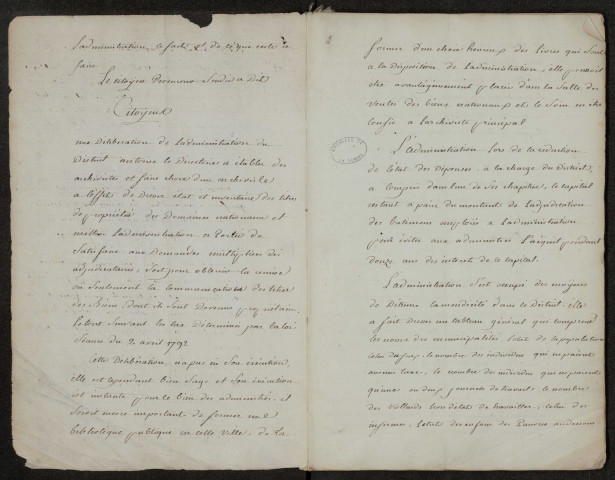 l'administration, a faits et de ce que reste a
faire
Le citoyen Procureur Sindic a Dit
Citoyens
une Deliberation de l'administration du
District autorise le Directoire a etablir des
archivistes et faire choix d'un archiviste
a l'effet de Dresser état et inventaire des titres
de propriété des Domaines nationaux et
mettre l'administration a portée de
Satisfaire aux Demandes multipliées des
adjudicataires, soit pour obtenir la remise
ou seulement la communication des titres
des Biens Dont ils sont Devenus propriétaires
le tout suivant les Determiné par la loi
du 2 avril 1792
Cette Deliberation n'a pas eu son éxécution,
elle est cependant bien sage et son éxécution
est instante pour le bien des administrés, il
seroit encore important de former une
bibliotèque publique en cette ville, de la
2
former d'un choix heureux des livres qui sont
a la disposition de l'administration, elle pourroit
etre avantageusement placée dans la salle des
ventes des biens nationaux et le soin en etre
confié a l'archiviste principal
L'administration lors de la reduction
de l'état des dépenses a la charge du District,
a compris dans l'un de ses chapitres, le capital
restant a paier du montant de l'adjudication
des batimens employés a l'administration
pour éviter aux administrés pendant
douze ans des interets de ce capital.
L'administration s'est occupé des moyens
de Détruire la mendicité dans le district. elle
a fait dresser un tableau général qui comprend
les noms des municipalités l'état de la population
celui du le nombre des individus qui ne paient
aucune taxe, le nombre des individus qui ne paient
qu'une ou deux journées de travail, le nombre
des vieillards hors d'état de travailler, celui des
infirmes, l'état des enfans des Pauvres au dessous